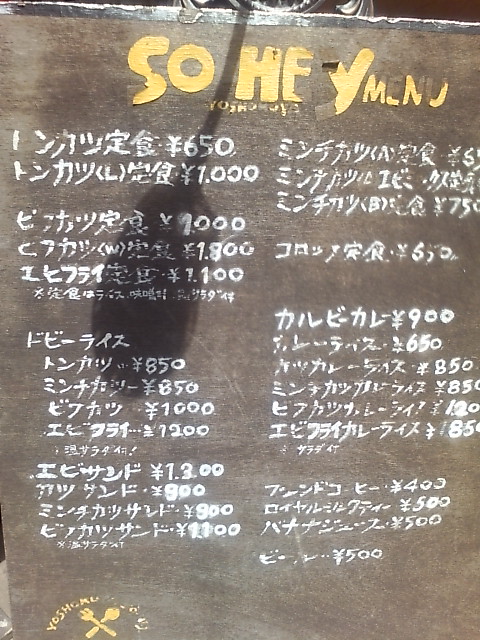 SO HEY MENU
トンカツ定食 ¥650
トンカツ(L)定食 ¥1,000
ビフカツ定食 ¥1,000
ビフカツ(W)定食 ¥1,800
エビフライ定食 ¥1,100
※定食はライス、味噌汁
ドビーライス
トンカツ ¥850
ミンチカツ ¥850
ビフカツ ¥1000
エビフライ ¥1200
エビサンド ¥1,300
カツサンド ¥800
ミンチカツサンド ¥800
ビフカツサンド ¥1100
※温サラダ付
ミンチカツ(A)定食
ミンチカツ
ミンチカツ(B)定食 ¥750
コロッケ定食 ¥650
カルビーカレー ¥900
カレーライス ¥650
カツカレーライス ¥850
ミンチカツカレーライス ¥850
ビフカツカレーライス
エビフライカレーライス
サラダ付
ブレンドコーヒー ¥400
ロイヤルミルクティー ¥500
バナナジュース ¥500
ビール ¥500